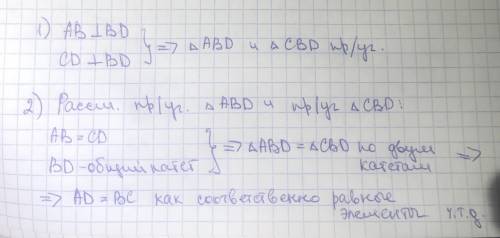 1) AB ⊥ BD
CD ⊥ BD } => △ABD и △CBD пр/уг.
2) Рассм. пр/уг. △ABD и пр/уг △CBD:
AB = CD
BD - общий катет } => △ABD = △CBD по двум катетам =>
=> AD = BC как соответственно равные
элементы ч.т.д.